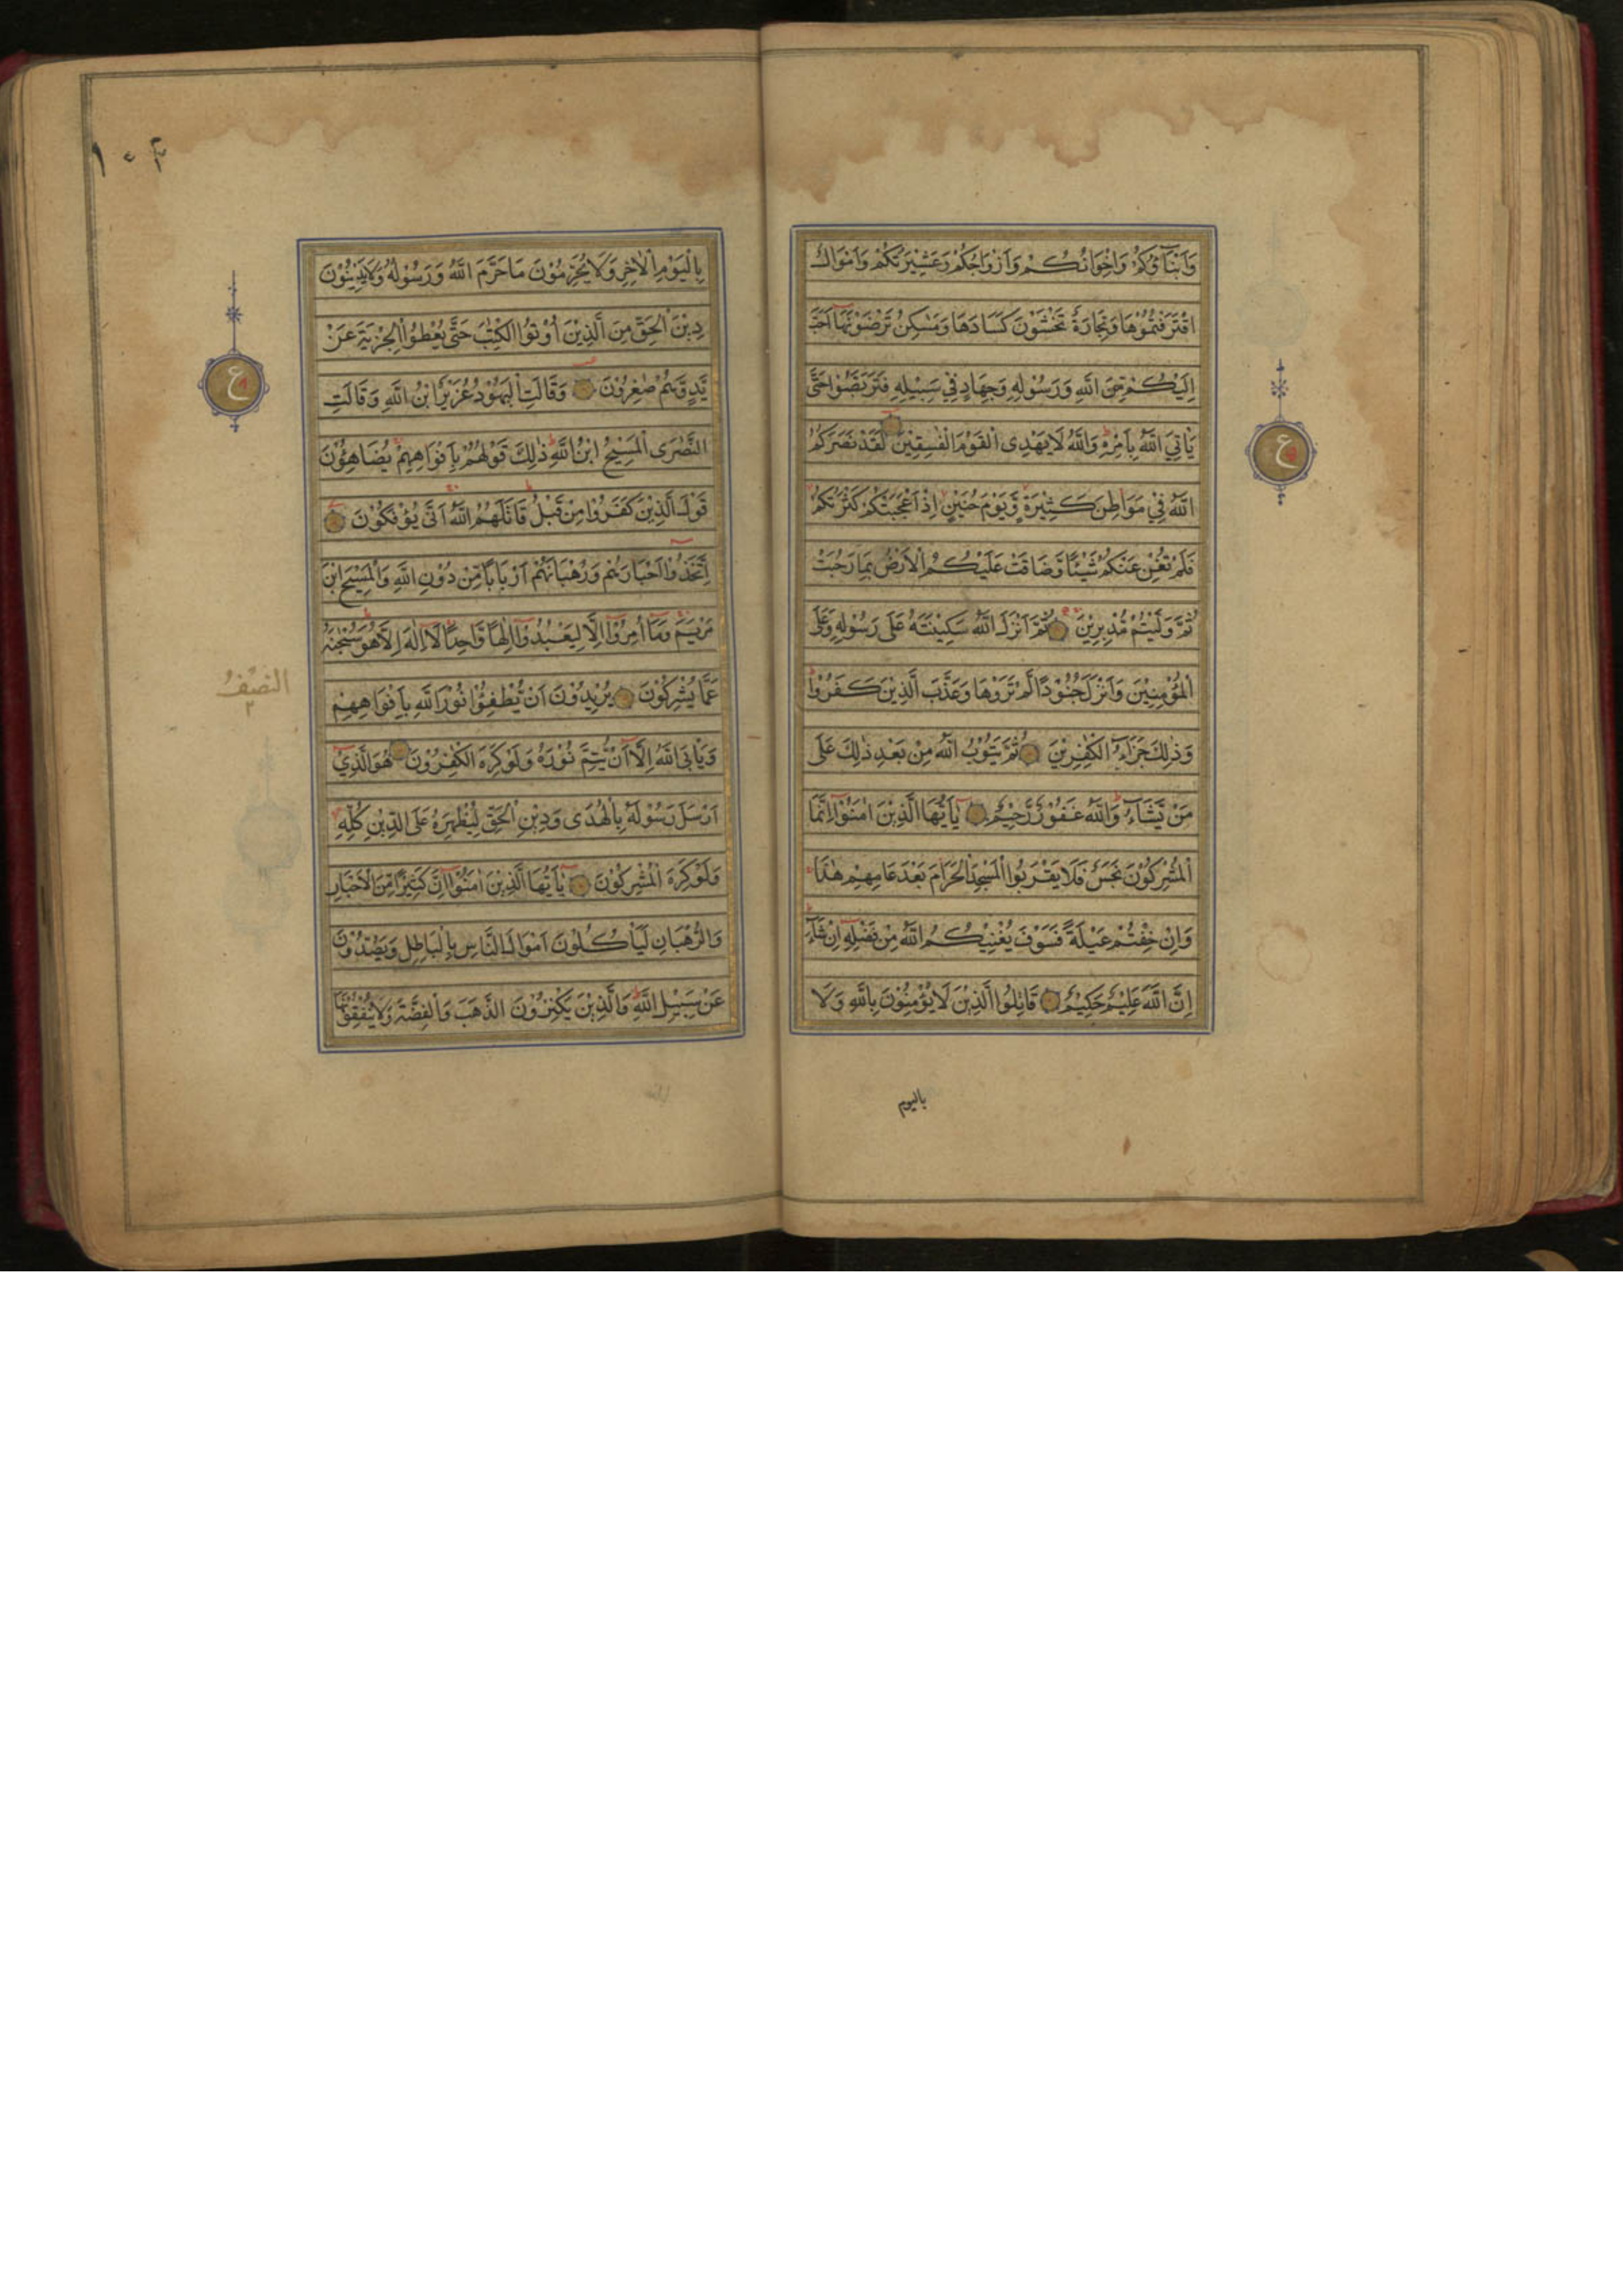 وَاَبْنَآؤُكُمْ وَاِخْوَانُكُمْ وَاَزْوَاجُكُمْ وَعَشِيْرَتُكُمْ وَاَمْوَالُ
اقْتَرَفْتُمُوْهَا وَتِجَارَةٌ تَخْشَوْنَ كَسَادَهَا وَمَسٰكِنُ تَرْضَوْنَهَا اَحَبَّ
اِلَيْكُمْ مِنَ اللّٰهِ وَرَسُوْلِهِ وَجِهَادٍ فِيْ سَبِيْلِهِ فَتَرَبَّصُوْا حَتّٰى
يَاْتِيَ اللّٰهُ بِاَمْرِهِ وَاللّٰهُ لَا يَهْدِى الْقَوْمَ الْفٰسِقِيْنَ لَقَدْ نَصَرَكُمُ
اللّٰهُ فِيْ مَوَاطِنَ كَثِيْرَةٍ وَّيَوْمَ حُنَيْنٍ اِذْ اَعْجَبَتْكُمْ كَثْرَتُكُمْ
فَلَمْ تُغْنِ عَنْكُمْ شَيْئًا وَّضَاقَتْ عَلَيْكُمُ الْاَرْضُ بِمَا رَحُبَتْ
ثُمَّ وَلَّيْتُمْ مُّدْبِرِيْنَ ثُمَّ اَنْزَلَ اللّٰهُ سَكِيْنَتَهُ عَلٰى رَسُوْلِهِ وَعَلَى
الْمُؤْمِنِيْنَ وَاَنْزَلَ جُنُوْدًا لَّمْ تَرَوْهَا وَعَذَّبَ الَّذِيْنَ كَفَرُوْا
وَذٰلِكَ جَزَآءُ الْكٰفِرِيْنَ ثُمَّ يَتُوْبُ اللّٰهُ مِنْ بَعْدِ ذٰلِكَ عَلٰى
مَنْ يَّشَآءُ وَاللّٰهُ غَفُوْرٌ رَّحِيْمٌ يٰٓاَيُّهَا الَّذِيْنَ اٰمَنُوْٓا اِنَّمَا
الْمُشْرِكُوْنَ نَجَسٌ فَلَا يَقْرَبُوا الْمَسْجِدَ الْحَرَامَ بَعْدَ عَامِهِمْ هٰذَا
وَاِنْ خِفْتُمْ عَيْلَةً فَسَوْفَ يُغْنِيْكُمُ اللّٰهُ مِنْ فَضْلِهِ اِنْ شَآءَ
اِنَّ اللّٰهَ عَلِيْمٌ حَكِيْمٌ قَاتِلُوا الَّذِيْنَ لَا يُؤْمِنُوْنَ بِاللّٰهِ وَلَا
باليوم
ع
بِالْيَوْمِ الْاٰخِرِ وَلَا يُحَرِّمُوْنَ مَا حَرَّمَ اللّٰهُ وَرَسُوْلُهُ وَلَا يَدِيْنُوْنَ
دِيْنَ الْحَقِّ مِنَ الَّذِيْنَ اُوْتُوا الْكِتٰبَ حَتّٰى يُعْطُوا الْجِزْيَةَ عَنْ
يَّدٍ وَّهُمْ صٰغِرُوْنَ وَقَالَتِ الْيَهُوْدُ عُزَيْرٌ ابْنُ اللّٰهِ وَقَالَتِ
النَّصٰرَى الْمَسِيْحُ ابْنُ اللّٰهِ ذٰلِكَ قَوْلُهُمْ بِاَفْوَاهِهِمْ يُضَاهِئُوْنَ
قَوْلَ الَّذِيْنَ كَفَرُوْا مِنْ قَبْلُ قَاتَلَهُمُ اللّٰهُ اَنّٰى يُؤْفَكُوْنَ
اِتَّخَذُوْٓا اَحْبَارَهُمْ وَرُهْبَانَهُمْ اَرْبَابًا مِّنْ دُوْنِ اللّٰهِ وَالْمَسِيْحَ ابْنَ
مَرْيَمَ وَمَآ اُمِرُوْٓا اِلَّا لِيَعْبُدُوْٓا اِلٰهًا وَّاحِدًا لَآ اِلٰهَ اِلَّا هُوَ سُبْحٰنَهُ
عَمَّا يُشْرِكُوْنَ يُرِيْدُوْنَ اَنْ يُّطْفِئُوْا نُوْرَ اللّٰهِ بِاَفْوَاهِهِمْ
وَيَاْبَى اللّٰهُ اِلَّآ اَنْ يُّتِمَّ نُوْرَهُ وَلَوْ كَرِهَ الْكٰفِرُوْنَ هُوَ الَّذِيْٓ
اَرْسَلَ رَسُوْلَهُ بِالْهُدٰى وَدِيْنِ الْحَقِّ لِيُظْهِرَهُ عَلَى الدِّيْنِ كُلِّهِ
وَلَوْ كَرِهَ الْمُشْرِكُوْنَ يٰٓاَيُّهَا الَّذِيْنَ اٰمَنُوْٓا اِنَّ كَثِيْرًا مِّنَ الْاَحْبَارِ
وَالرُّهْبَانِ لَيَاْكُلُوْنَ اَمْوَالَ النَّاسِ بِالْبَاطِلِ وَيَصُدُّوْنَ
عَنْ سَبِيْلِ اللّٰهِ وَالَّذِيْنَ يَكْنِزُوْنَ الذَّهَبَ وَالْفِضَّةَ وَلَا يُنْفِقُوْنَهَا
ع
النصف
٢